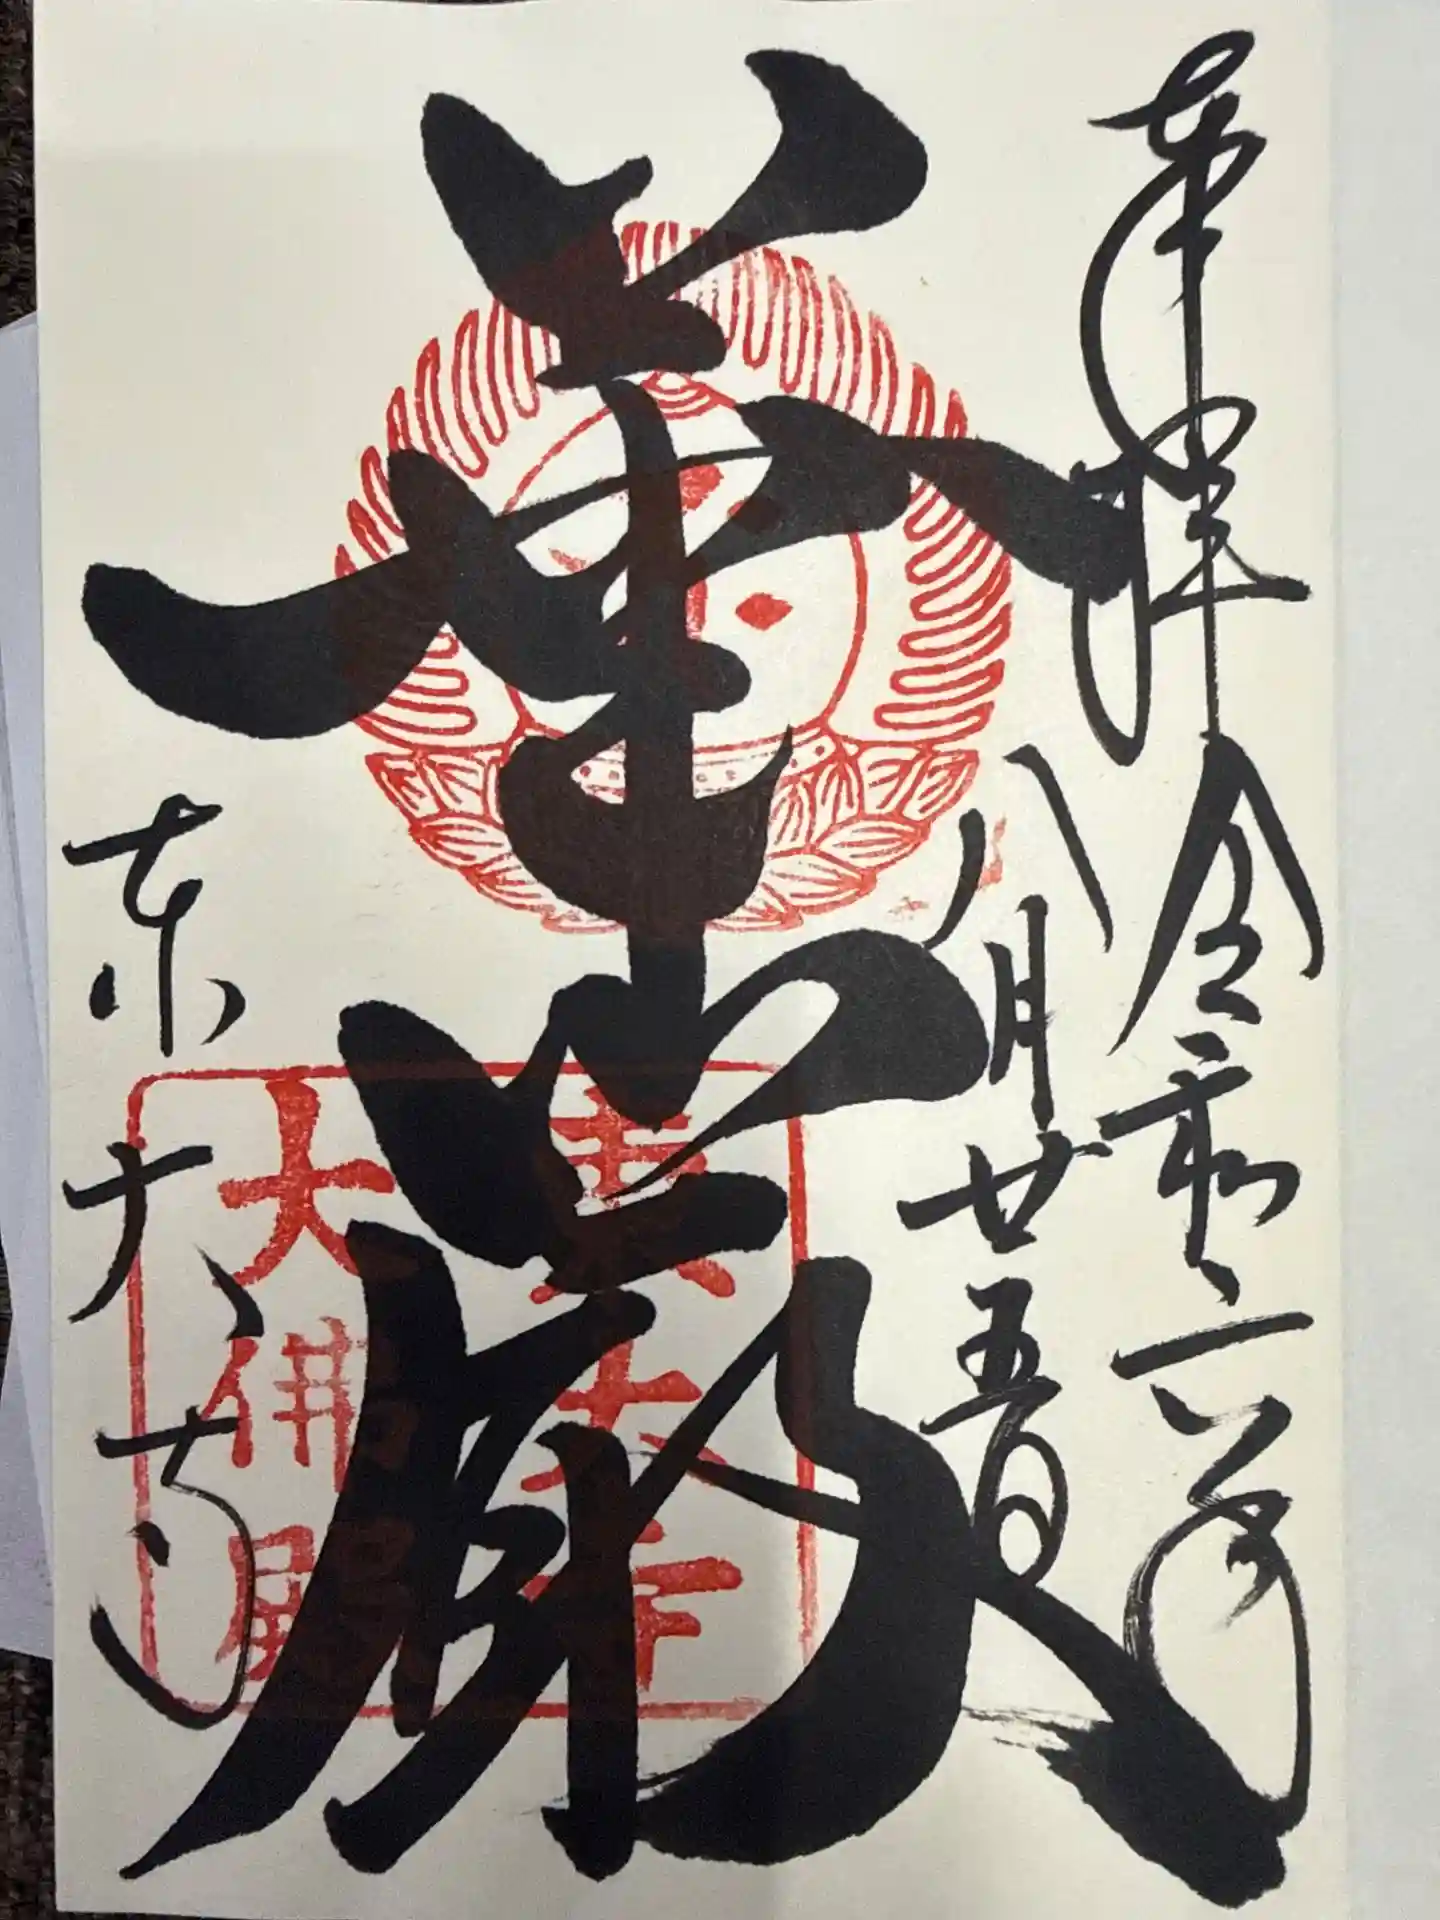 奉拝
令和六年
八月廿五日
華厳
東大寺
東大寺
大佛殿